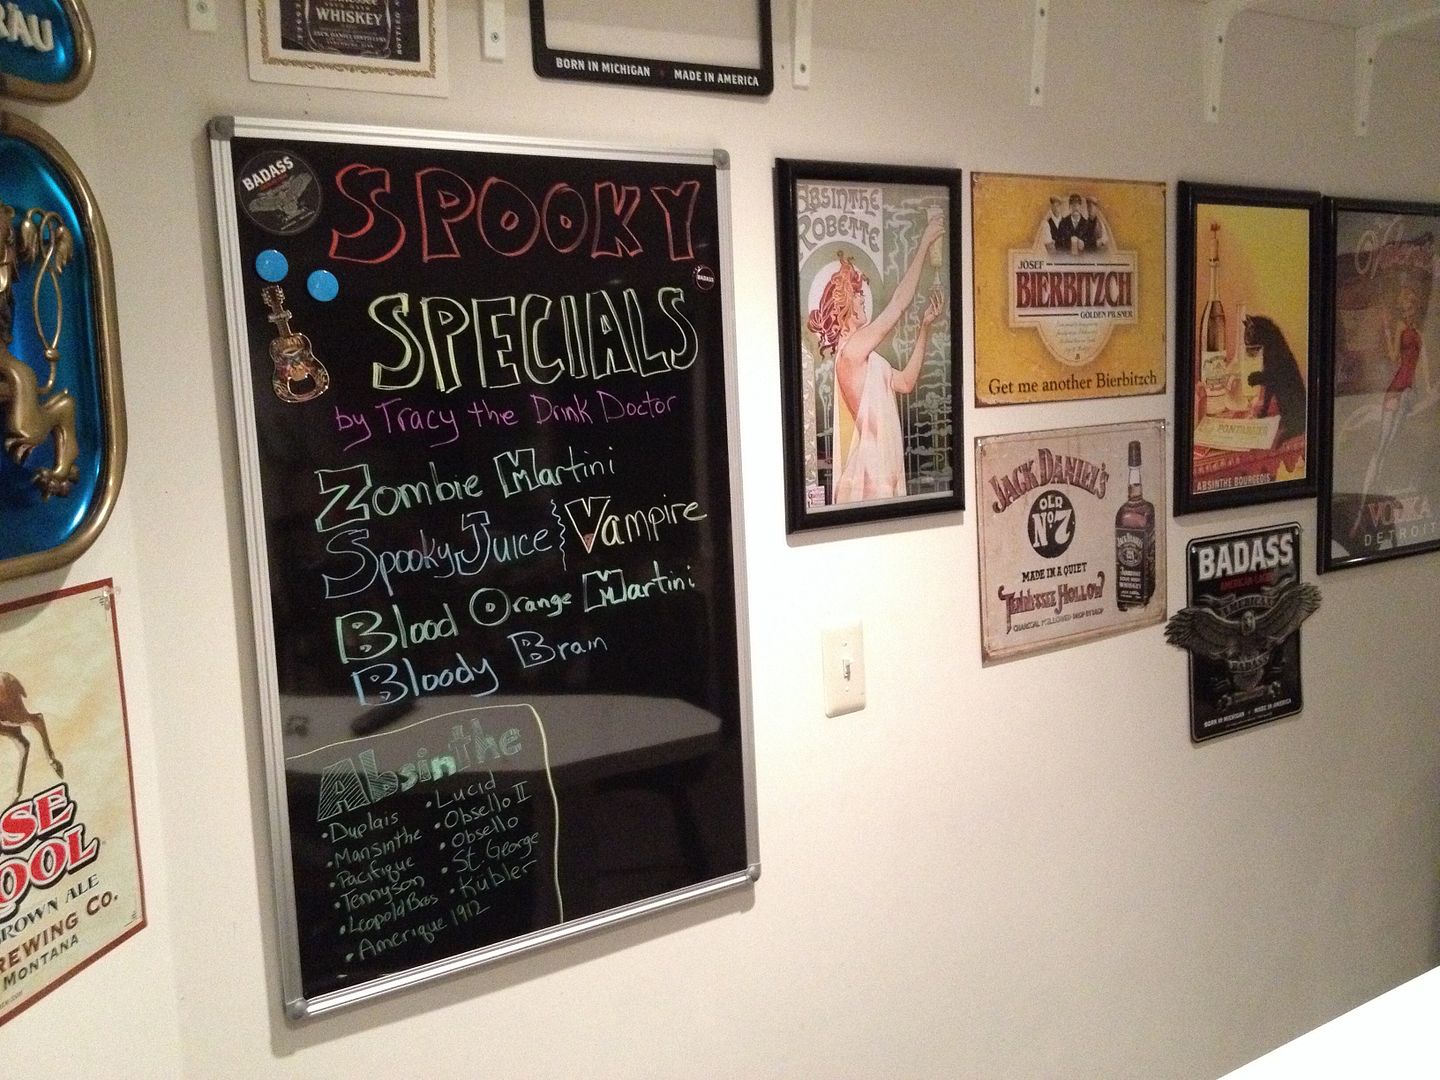 BRÄU
WHISKEY
BORN IN MICHIGAN MADE IN AMERICA
BADASS
SPOOKY
SPECIALS
BADASS
by Tracy the Drink Doctor
Zombie Martini
Spooky Juice Vampire
Blood Orange Martini
Bloody Brain
Absinthe
• Duplais
• Mansinthe
• Pacifique
• Tennyson
• Leopold Bros
• Amerique 1912
• Lucid
• Obsello II
• Obsello
• St. George
• Kübler
ABSINTHE
ROBETTE
JOSEF
BIERBITZCH
GOLDEN PILSNER
Get me another Bierbitzch
JACK DANIEL'S
OLD
Nº7
MADE IN A QUIET
TENNESSEE HOLLOW
CHARCOAL MELLOWED DROP BY DROP
PONTARLIER
ABSINTHE BOURGEOIS
VODKA
DETROIT
BADASS
AMERICAN LAGER
AMERICAN
BORN IN MICHIGAN • MADE IN AMERICA
SE
OOL
ROWN ALE
REWING CO.
MONTANA